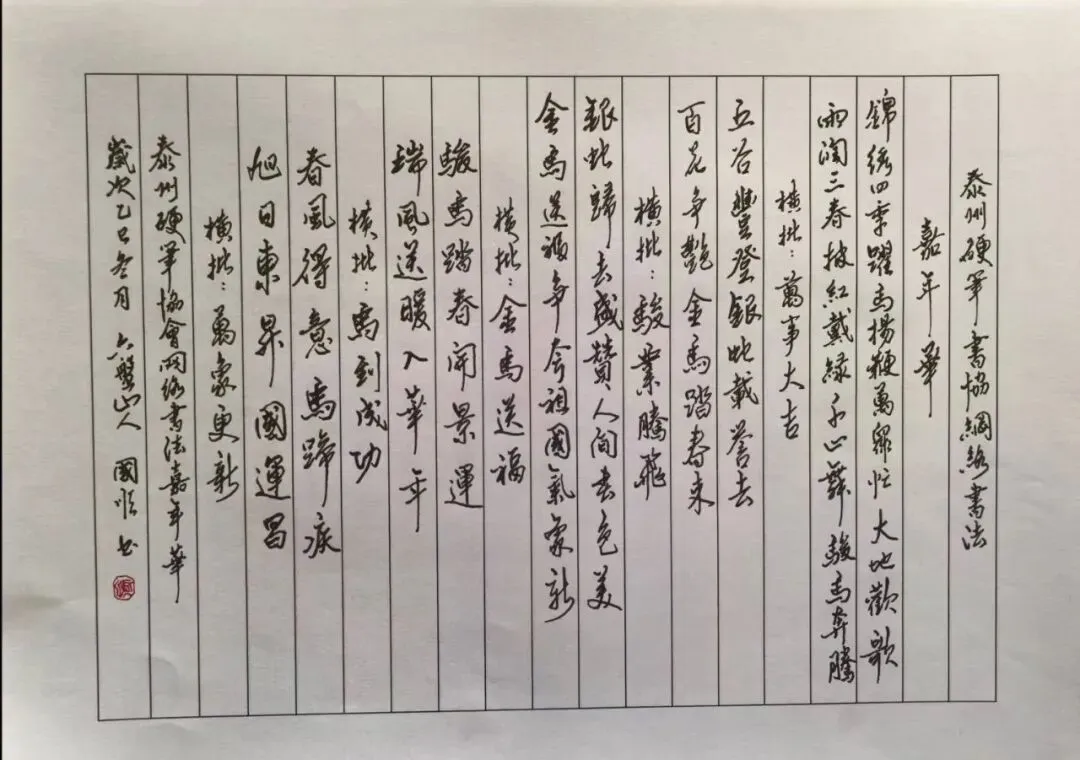 泰州硬筆書協網絡書法
嘉年華
錦绣四季躍馬揚鞭萬眾忙大地歡歌
雨潤三春披紅戴緑千山舞駿馬奔騰
横批：萬事大吉
五谷豐登銀蛇載誉去
百花争艷金馬踏春来
横批：駿業騰飛
銀蛇歸去盛贊人间春色美
金馬送福争夸祖國氣象新
横批：金馬送福
駿馬踏春開景運
瑞風送暖入華年
横批：馬到成功
春風得意馬蹄疾
旭日東昇國運昌
横批：萬象更新
泰州硬筆協會网络書法嘉年華
歲次乙巳冬月 六盤山人 國順书